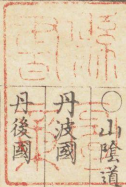 ○山陰道
丹波國
丹後國